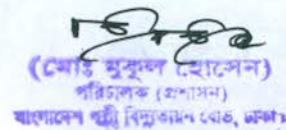 (মোঃ মুকুল হোসেন)
পরিচালক (প্রশাসন)
বাংলাদেশ পল্লী বিদ্যুতায়ন বোর্ড, ঢাকা।